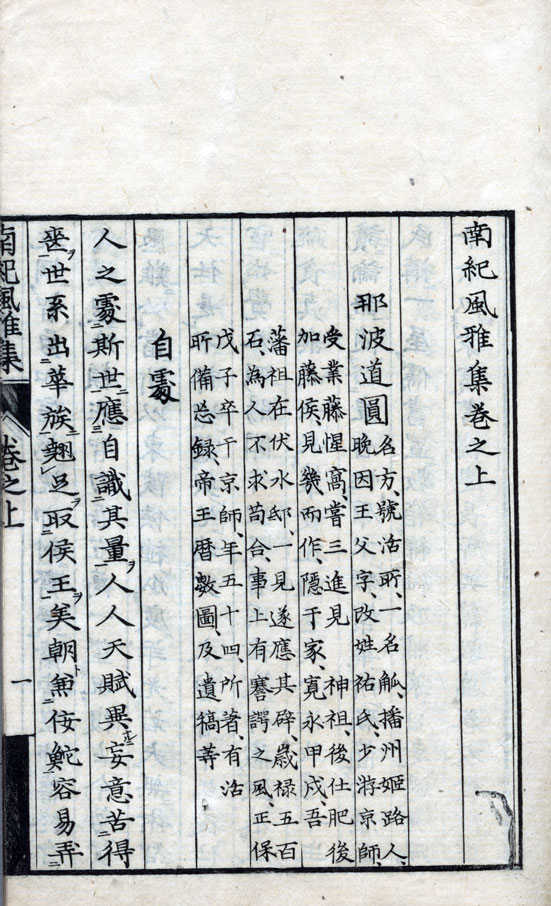 南紀風雅集卷之上
那波道圓
名方、號活所、一名觚、播州姫路人、
晩因王父字、改姓祐氏、少游京師、
受業藤惺窩、嘗三進見　神祖、後仕肥後
加藤侯、見幾而作、隱于家、寛永甲戌、吾
藩祖在伏水邸、一見遂應其辟、歳禄五百
石、為人不求苟合、事上有謇諤之風、正保
戊子卒于京師、年五十四、所著、有活
所備忘録、帝王暦數圖、及遺稿等
自處
人之處斯世應自識其量人人天賦異妄意苦得
喪世系出華族翹足取侯王美朝兼佞鮀容易弄
南紀風雅集　卷之上　一